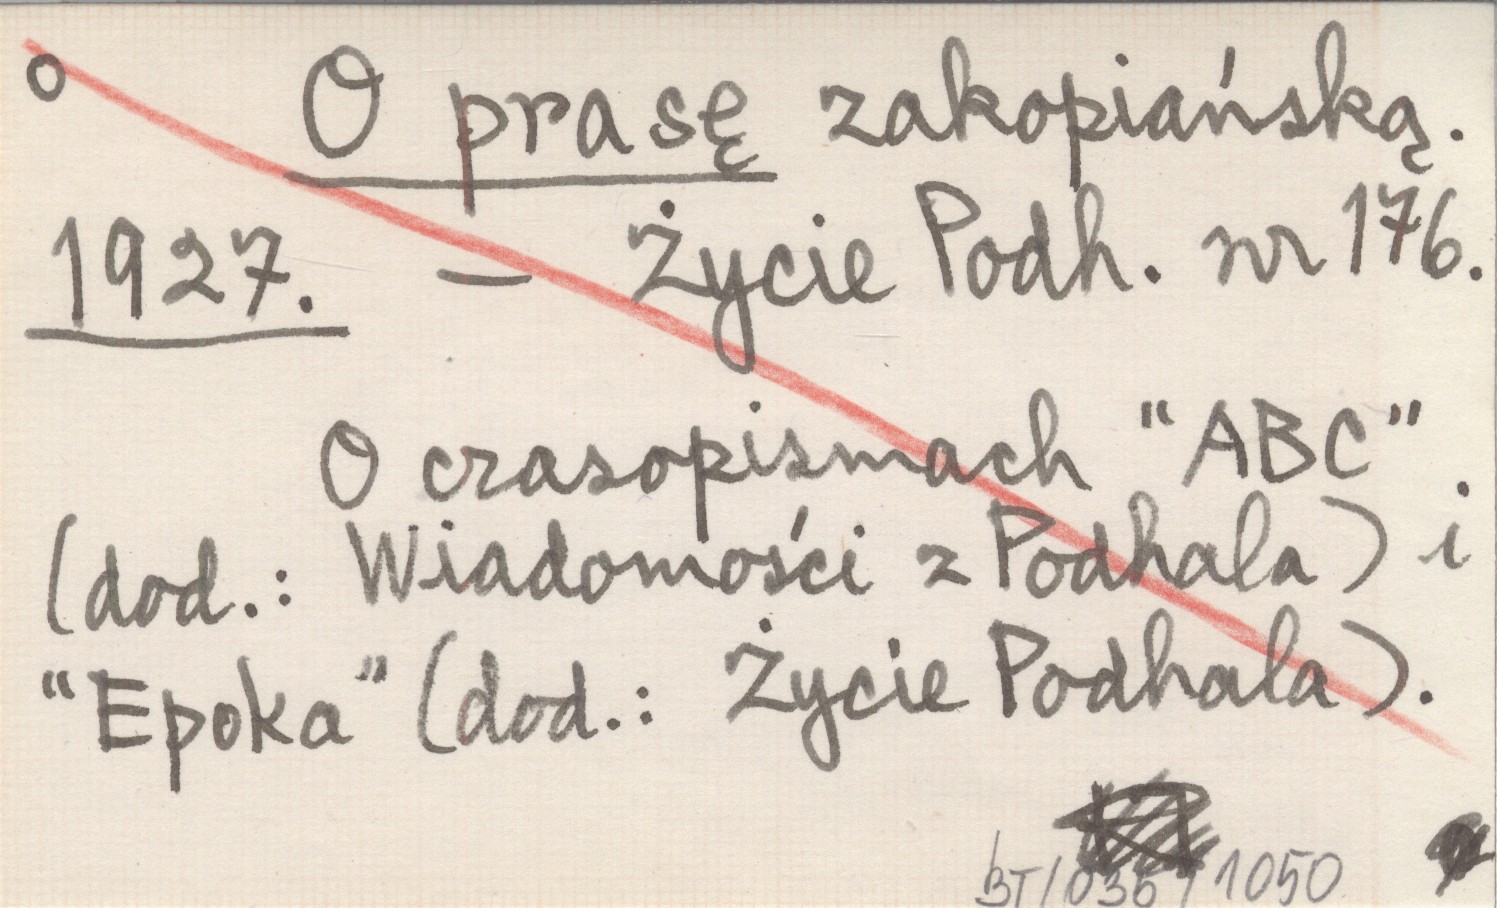 o O prasę zakopiańską.
1927. – Życie Podh. nr 176.
O czasopismach "ABC"
(dod.: Wiadomości z Podhala) i
"Epoka" (dod.: Życie Podhala).
BT/036/1050